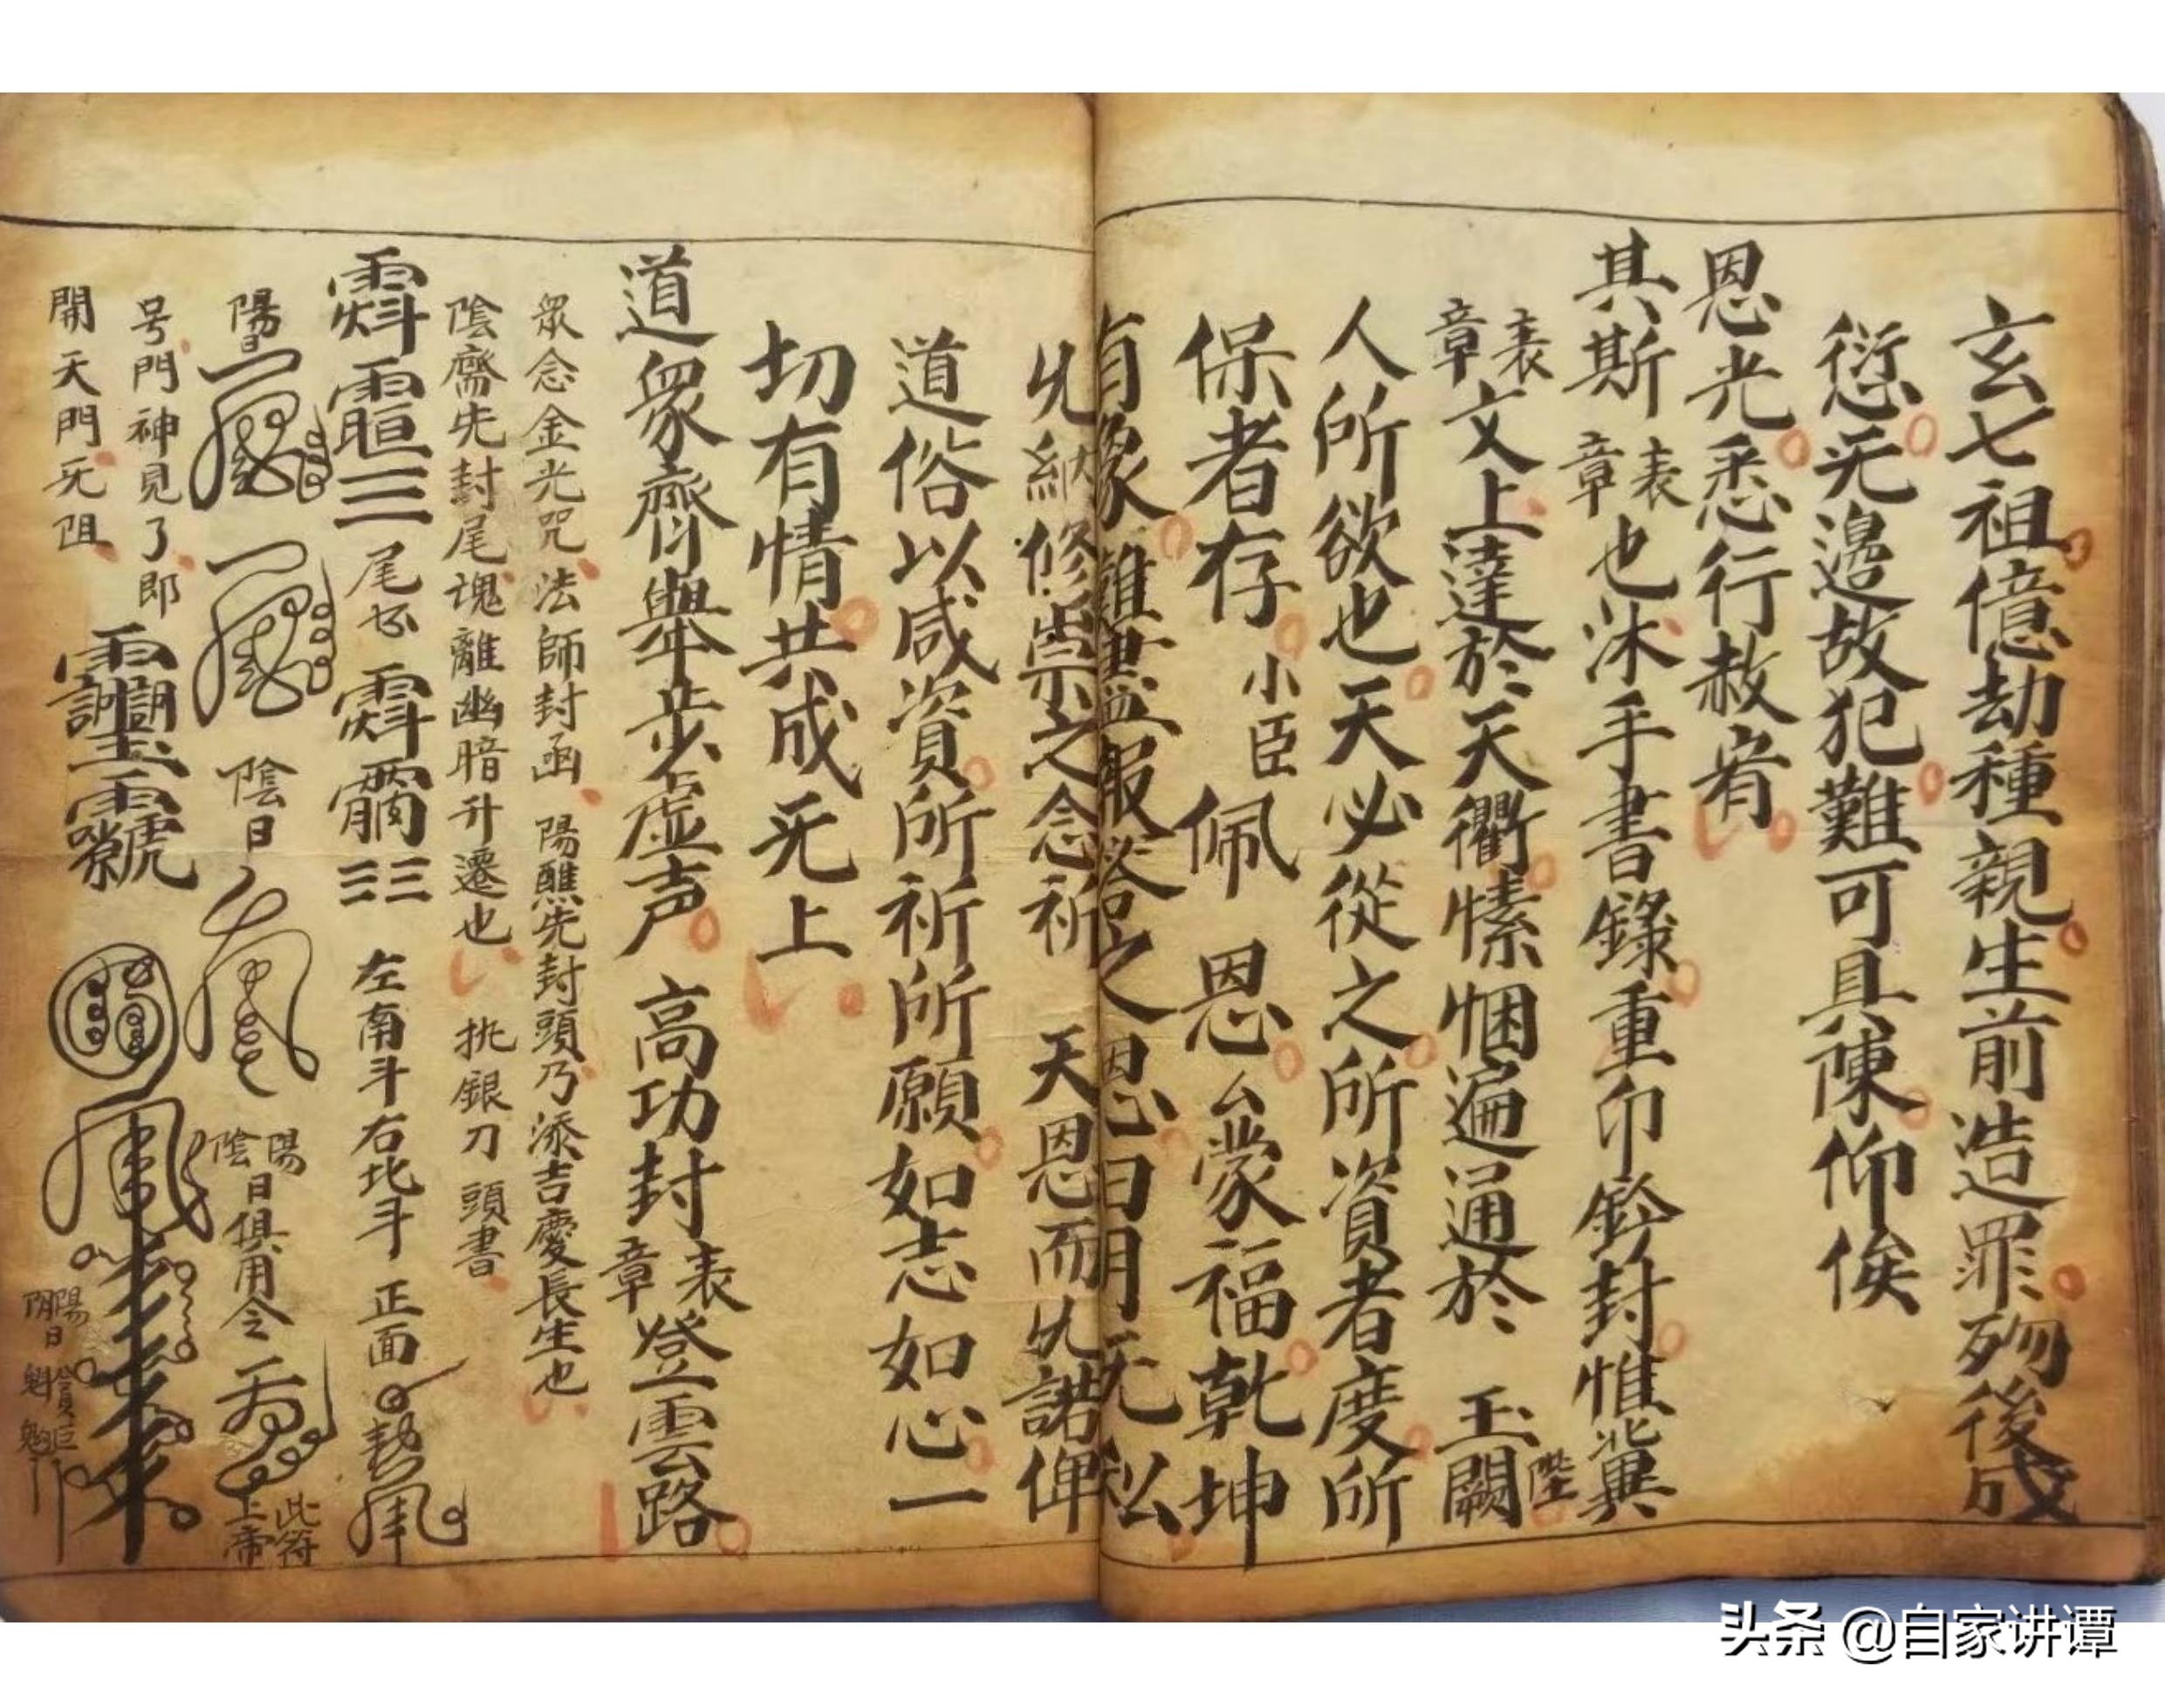 玄七祖億劫種親生前造罪歿後成
愆旡邊故犯難可具陳仰俟
恩光悉行赦宥
其斯表章也沐手書錄重印鈐封惟冀
表章文上達於天衢愫悃遍通於 玉闕陛
人所欲也天必從之所資者度所
保者存小臣佩 恩厶蒙福乾坤
有象難盡報答之恩日月无私
允納修崇之念祈 天恩而允諾俾
道俗以咸資所祈所願如志如心一
切有情共成旡上
道眾齊舉步虛声 高功封表章登雲路
眾念金光咒法師封函陽醮先封頭乃添吉慶長生也
陰齋先封尾魂離幽暗升遷也 挑銀刀頭書
尾书
左南斗右北斗 正面
陽日
陰日
陽陰日俱用令
此符上帝
号門神見了即
開天門旡阻
陽日
陰日
头条 @自家讲谭